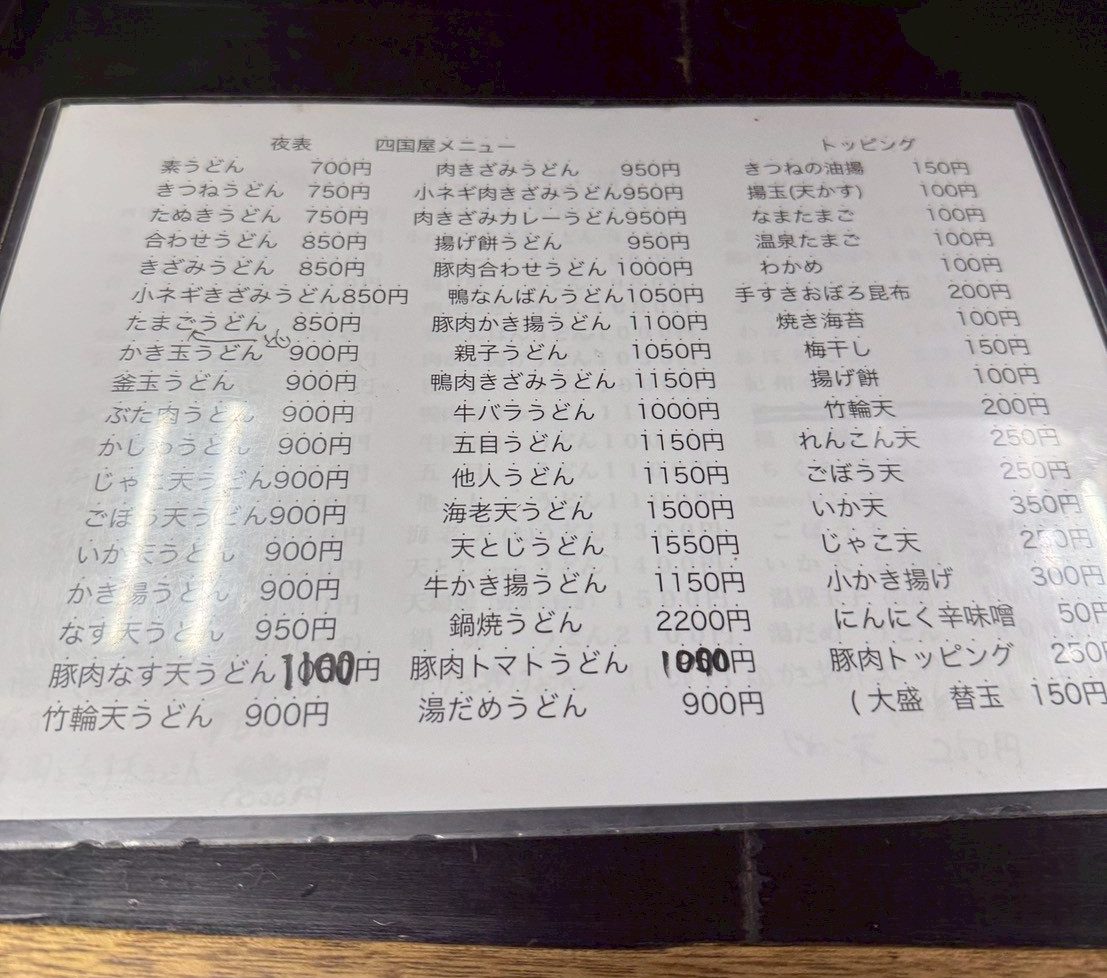 夜表 四国屋メニュー
素うどん 700円
きつねうどん 750円
たぬきうどん 750円
合わせうどん 850円
きざみうどん 850円
小ネギきざみうどん850円
たまごうどん 850円
かき玉うどん 900円
釜玉うどん 900円
ぶた肉うどん 900円
かしわうどん 900円
じゃこ天うどん900円
ごぼう天うどん900円
いか天うどん 900円
かき揚うどん 900円
なす天うどん 950円
豚肉なす天うどん1100円
竹輪天うどん 900円
肉きざみうどん 950円
小ネギ肉きざみうどん950円
肉きざみカレーうどん950円
揚げ餅うどん 950円
豚肉合わせうどん 1000円
鴨なんばんうどん1050円
豚肉かき揚うどん 1100円
親子うどん 1050円
鴨肉きざみうどん 1150円
牛バラうどん 1000円
五目うどん 1150円
他人うどん 1150円
海老天うどん 1500円
天とじうどん 1550円
牛かき揚うどん 1150円
鍋焼うどん 2200円
豚肉トマトうどん 円
湯だめうどん 900円
トッピング
きつねの油揚 150円
揚玉(天かす) 100円
なまたまご 100円
温泉たまご 100円
わかめ 100円
手すきおぼろ昆布 200円
焼き海苔 100円
梅干し 150円
揚げ餅 100円
竹輪天 200円
れんこん天 250円
ごぼう天 250円
いか天 350円
じゃこ天 250円
小かき揚げ 300円
にんにく辛味噌 50円
豚肉トッピング 250円
(大盛 替玉 150円